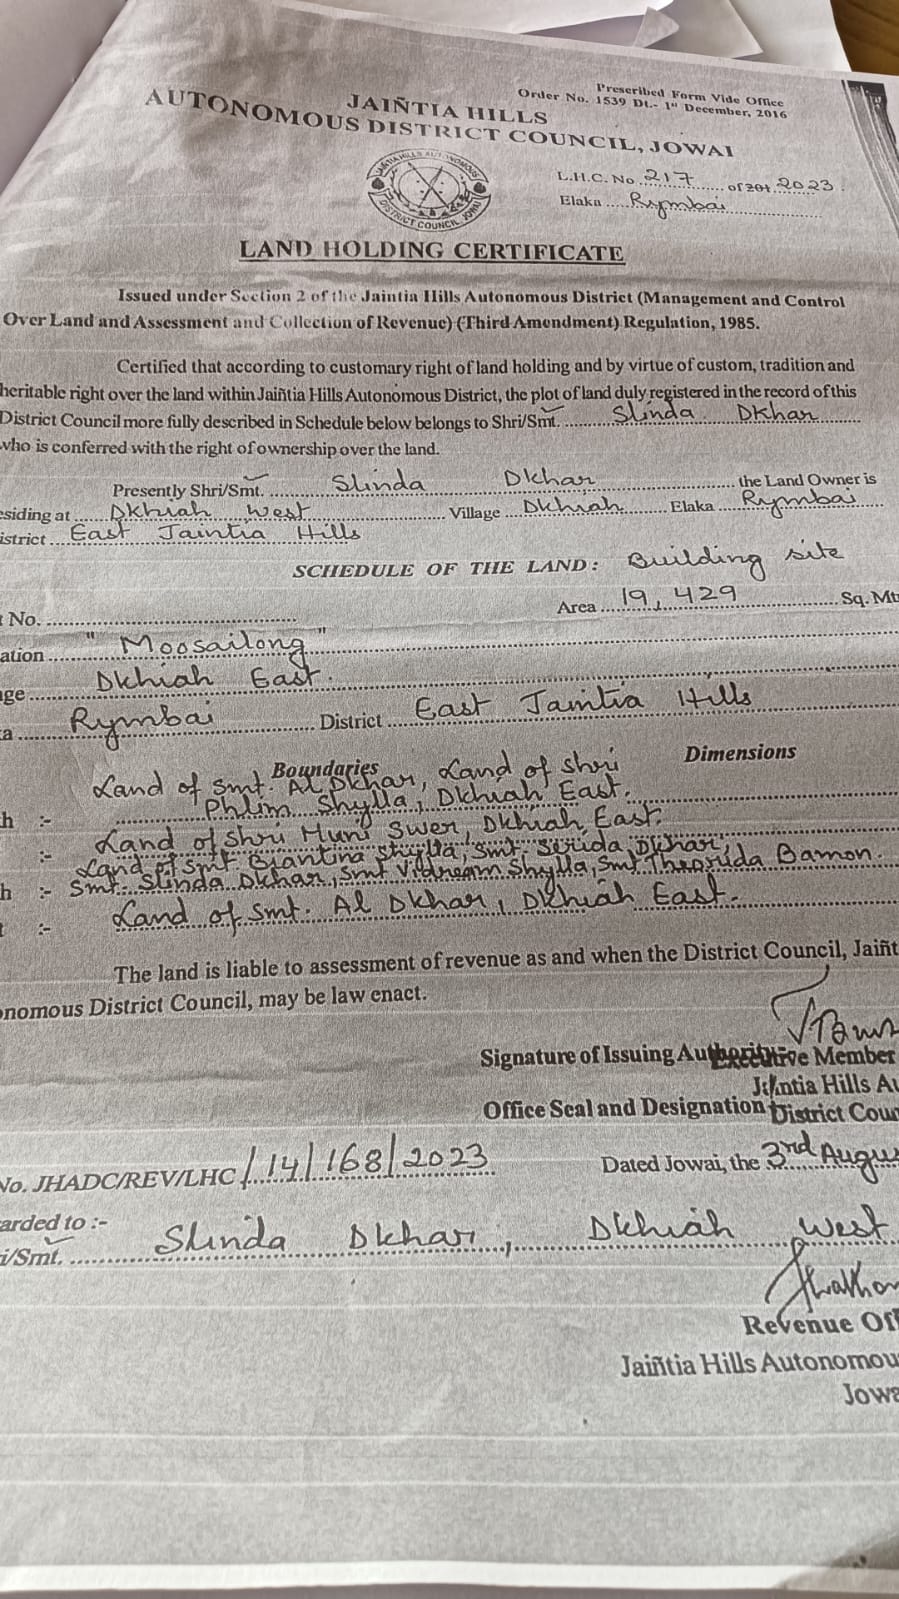 Prescribed Form Vide Office
Order No. 1539 Dt.- 1st December, 2016
JAIÑTIA HILLS
AUTONOMOUS DISTRICT COUNCIL, JOWAI
L.H.C. No. 217 of 201 2023.
Elaka Rymbai
JAIÑTIA HILLS AUTONOMOUS
DISTRICT COUNCIL JOWAI
LAND HOLDING CERTIFICATE
Issued under Section 2 of the Jaintia Hills Autonomous District (Management and Control
Over Land and Assessment and Collection of Revenue) (Third Amendment) Regulation, 1985.
Certified that according to customary right of land holding and by virtue of custom, tradition and
heritable right over the land within Jaiñtia Hills Autonomous District, the plot of land duly registered in the record of this
District Council more fully described in Schedule below belongs to Shri/Smt. Slinda Dkhar
who is conferred with the right of ownership over the land.
Presently Shri/Smt. Slinda Dkhar the Land Owner is
esiding at Dkhiah West Village Dkhiah Elaka Rymbai
istrict East Jaintia Hills
SCHEDULE OF THE LAND: Building site
t No. Area 19,429 Sq. Mt
ation "Moosailong"
age Dkhiah East.
a Rymbai District East Jaintia Hills
Boundaries Dimensions
Land of Smt. Al Dkhar, Land of Shri
h :- Phlim Shylla, Dkhiah East.
:- Land of Shri Muni Swer, Dkhiah East.
Land of Smt Biantina Shylla, Smt. Serida Dkhar,
h :- Smt. Slinda Dkhar, Smt Shylla, Smt. Bamon.
t :- Land of Smt. Al Dkhar, Dkhiah East.
The land is liable to assessment of revenue as and when the District Council, Jaiñt
onomous District Council, may be law enact.
Signature of Issuing Authority
Executive Member
Jaintia Hills Au
Office Seal and Designation District Coun
No. JHADC/REV/LHC/14/168/2023 Dated Jowai, the 3rd Augus
arded to :-
i/Smt. Slinda Dkhar, Dkhiah West
Revenue Off
Jaiñtia Hills Autonomou
Jowa